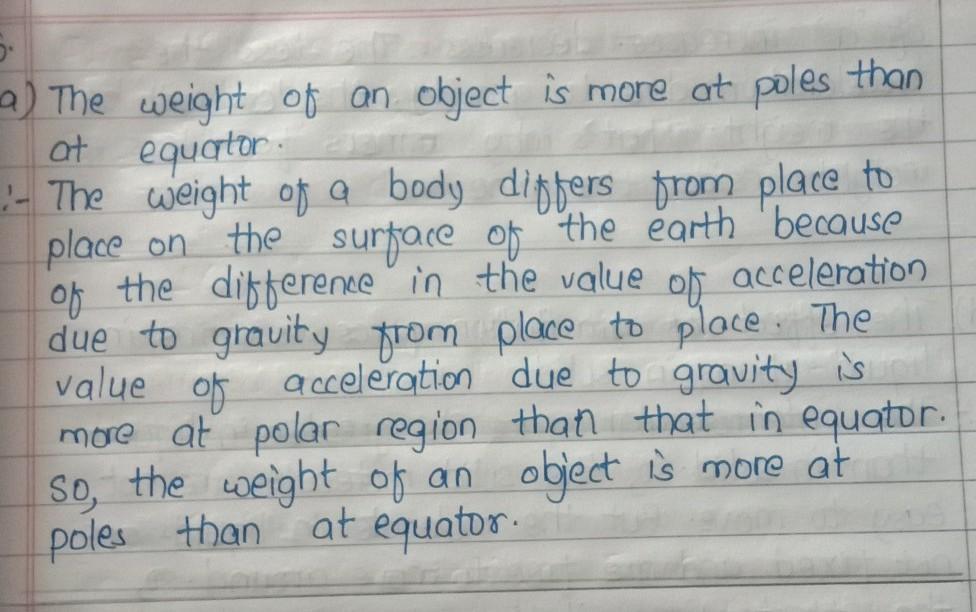 a) The weight of an object is more at poles than
at equator.
:- The weight of a body differs from place to
place on the surface of the earth because
of the difference in the value of acceleration
due to gravity from place to place. The
value of acceleration due to gravity is
more at polar region than that in equator.
so, the weight of an object is more at
poles than at equator.